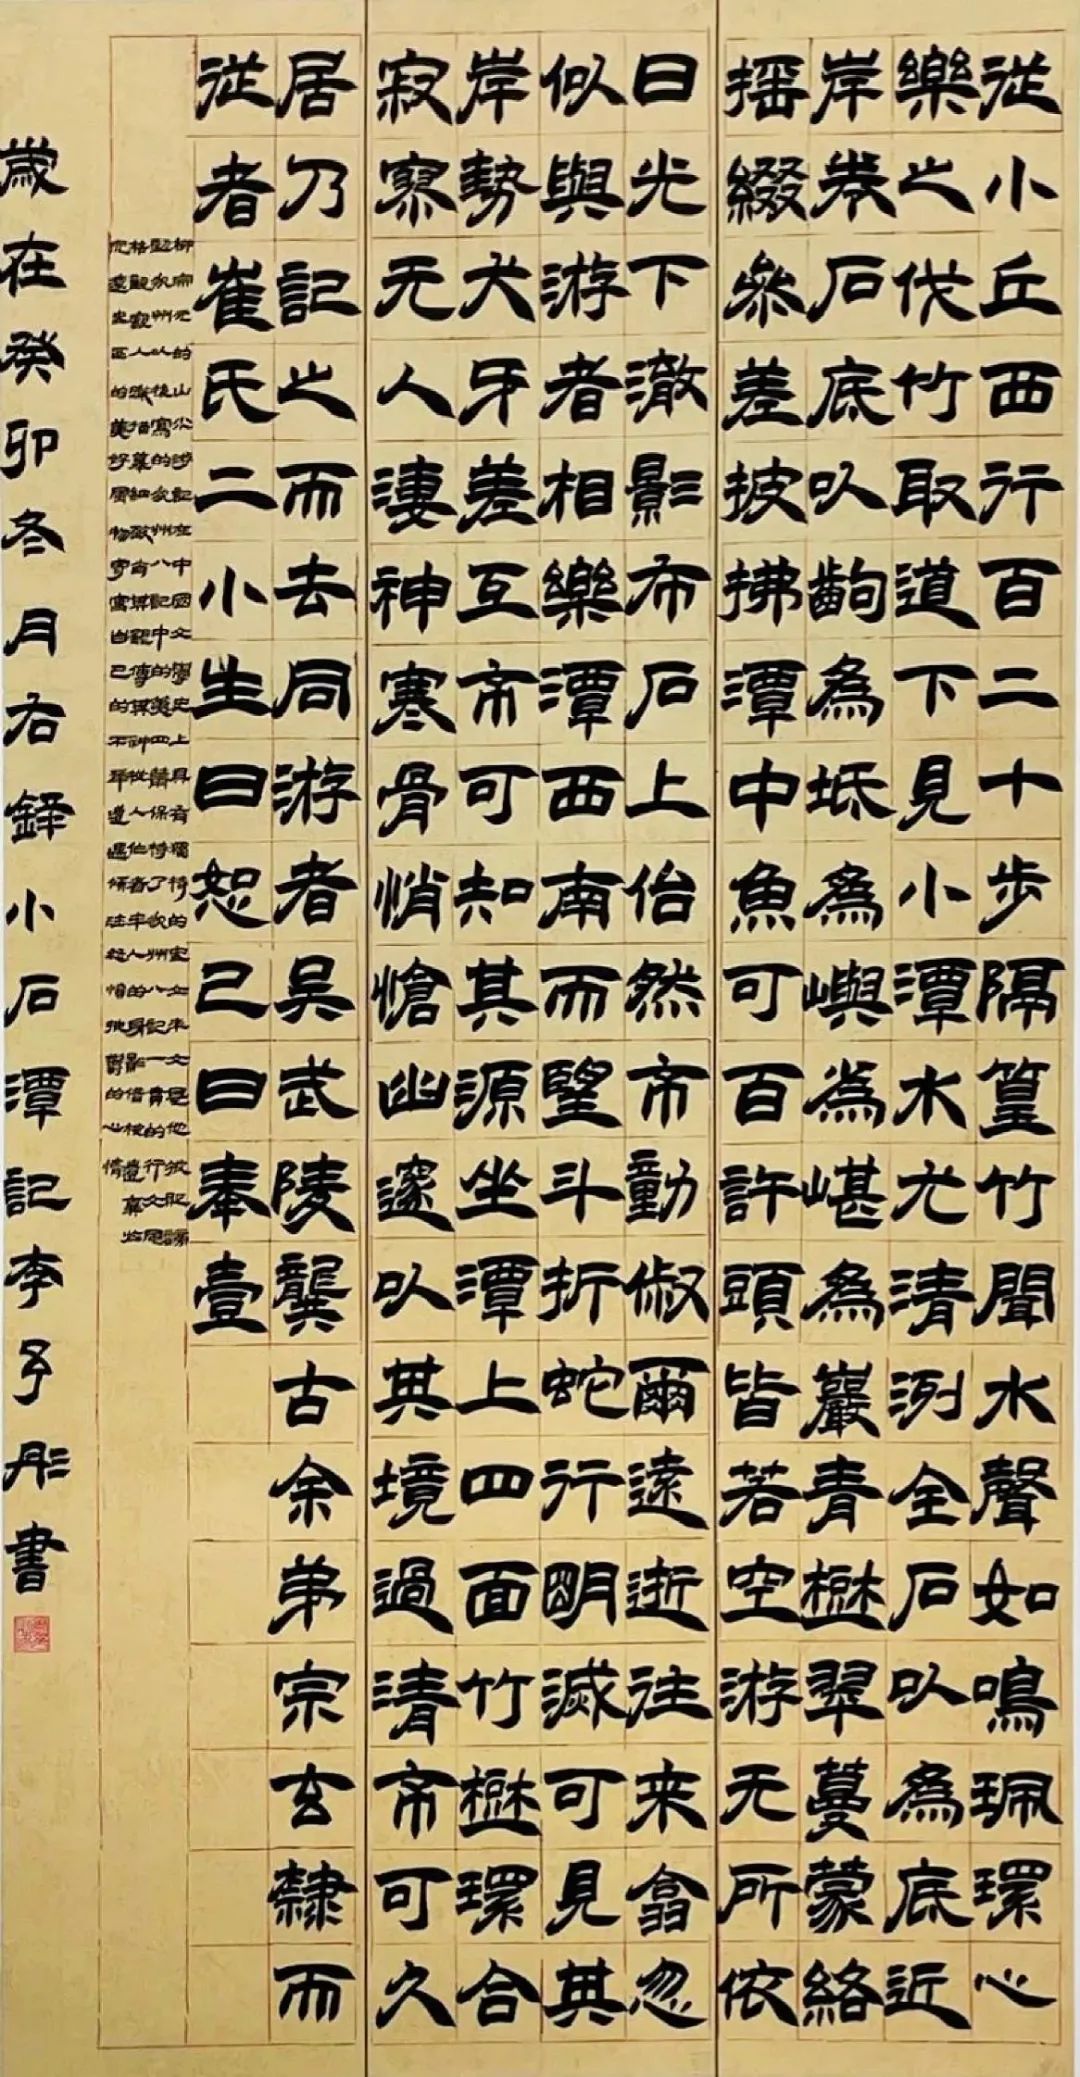 從小丘西行百二十步隔篁竹聞水聲如鳴珮環心
樂之伐竹取道下見小潭水尤清洌全石以為底近
岸卷石底以齣為坻為嶼為嵁為巖青樹翠蔓蒙絡
摇綴參差披拂潭中魚可百許頭皆若空游无所依
日光下澈影布石上佁然不動俶爾遠逝往来翕忽
似與游者相樂潭西南而望斗折蛇行明滅可見其
岸勢犬牙差互不可知其源坐潭上四面竹樹環合
寂寥无人淒神寒骨悄愴幽邃以其境過清不可久
居乃記之而去同游者吴武陵龔古余弟宗玄隸而
從者崔氏二小生曰恕己曰奉壹
柳宗元的山水游記在中國文學史上具有獨特的
歲在癸卯冬月右鐸小石潭記李子彤書